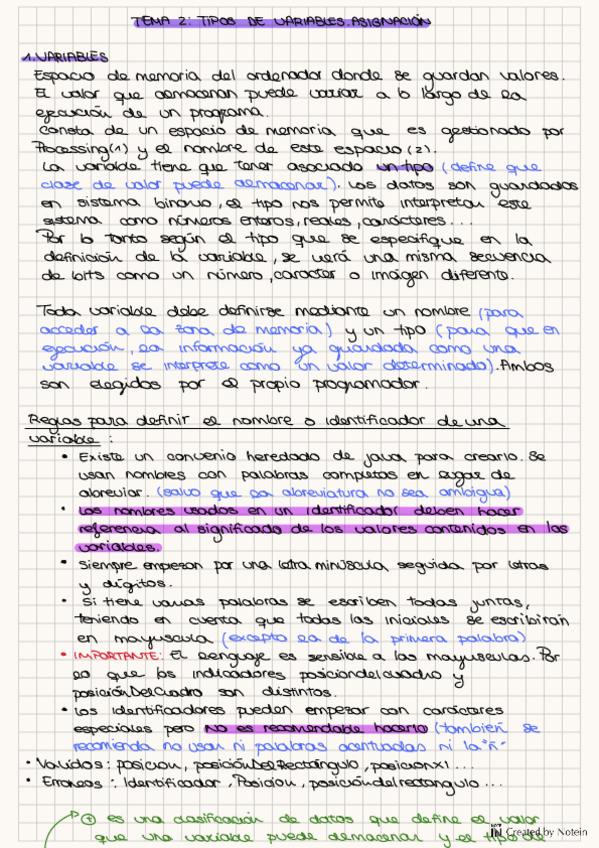 TEMA 2: TIPOS DE VARIABLES. ASIGNACIÓN
1. VARIABLES
Espacio de memoria del ordenador donde se guardan valores.
El valor que almacenan puede variar a lo largo de la
ejecución de un programa.
Consta de un espacio de memoria que es gestionado por
Processing(1) y el nombre de este espacio (2).
La variable tiene que tener asociado un tipo (define que
clase de valor puede almacenar). Los datos son guardados
en sistema binario, el tipo nos permite interpretar este
sistema como números enteros, reales, carácteres...
Por lo tanto según el tipo que se especifique en la
definición de la variable, se verá una misma secuencia
de bits como un número, caracter o imágen diferente.
Toda variable debe definirse mediante un nombre (para
acceder a la zona de memoria) y un tipo (para que en
ejecución, la información ya guardada como una
variable se interprete como un valor determinado). Ambos
son elegidos por el propio programador.
Reglas para definir el nombre o identificador de una
variable:
• Existe un convenio heredado de java para crearlo. Se
usan nombres con palabras completas en lugar de
abreviar. (salvo que la abreviatura no sea ambigua)
• Los nombres usados en un identificador deben hacer
referencia al significado de los valores contenidos en las
variables.
• Siempre empiezan por una letra minúscula seguida por letras
y dígitos.
• Si tiene varias palabras se escriben todas juntas,
teniendo en cuenta que todas las iniciales se escribirán
en mayúscula (excepto la de la primera palabra)
• IMPORTANTE: El lenguaje es sensible a las mayúsculas. Por
lo que los indicadores posiciondelcuadro y
posiciónDelCuadro son distintos.
• Los identificadores pueden empezar con carácteres
especiales pero no es recomendable hacerlo (también se
recomienda no usar ni palabras acentuadas ni la "ñ"
• Validos: posicion, posiciónDelRectángulo, posicionX1...
• Erroneos: Identificador, Posicion, posicióndelrectangulo...
es una clasificación de datos que define el valor
que una variable puede almacenar y el tipo de
Created by Notein